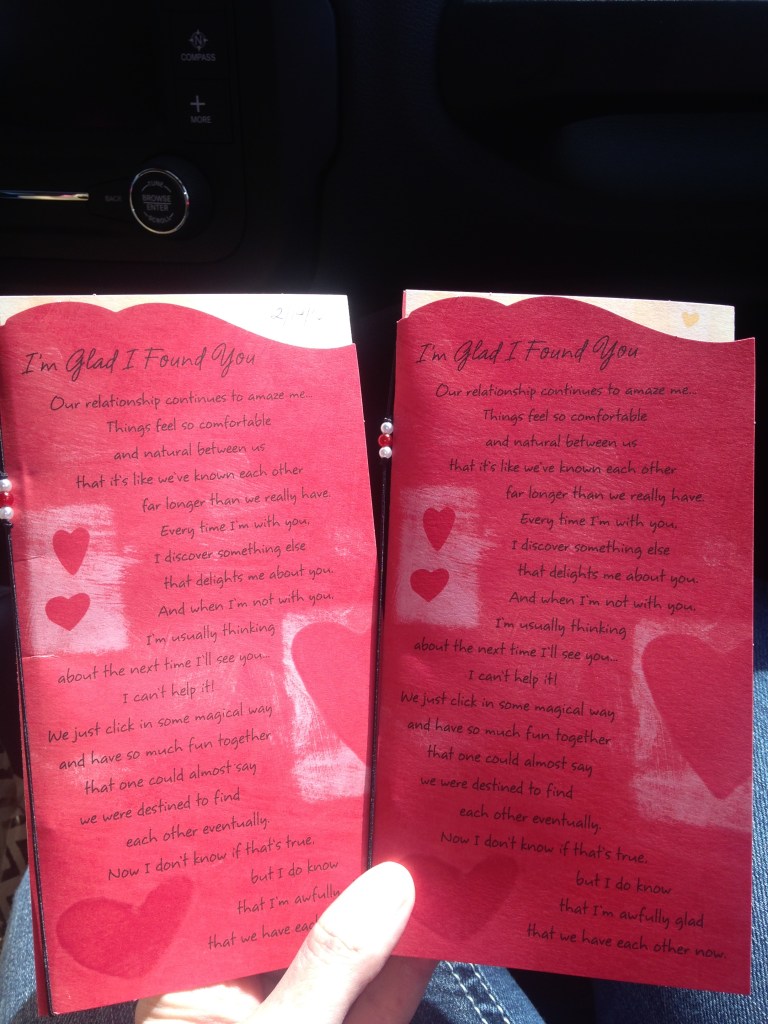 N
COMPASS
+
MORE
BACK
BROWSE
ENTER
I'm Glad I Found You
Our relationship continues to amaze me...
Things feel so comfortable
and natural between us
that it's like we've known each other
far longer than we really have.
Every time I'm with you,
I discover something else
that delights me about you.
And when I'm not with you,
I'm usually thinking
about the next time I'll see you...
I can't help it!
We just click in some magical way
and have so much fun together
that one could almost say
we were destined to find
each other eventually.
Now I don't know if that's true,
but I do know
that I'm awfully
that we have each
I'm Glad I Found You
Our relationship continues to amaze me...
Things feel so comfortable
and natural between us
that it's like we've known each other
far longer than we really have.
Every time I'm with you,
I discover something else
that delights me about you.
And when I'm not with you,
I'm usually thinking
about the next time I'll see you...
I can't help it!
We just click in some magical way
and have so much fun together
that one could almost say
we were destined to find
each other eventually.
Now I don't know if that's true,
but I do know
that I'm awfully glad
that we have each other now.